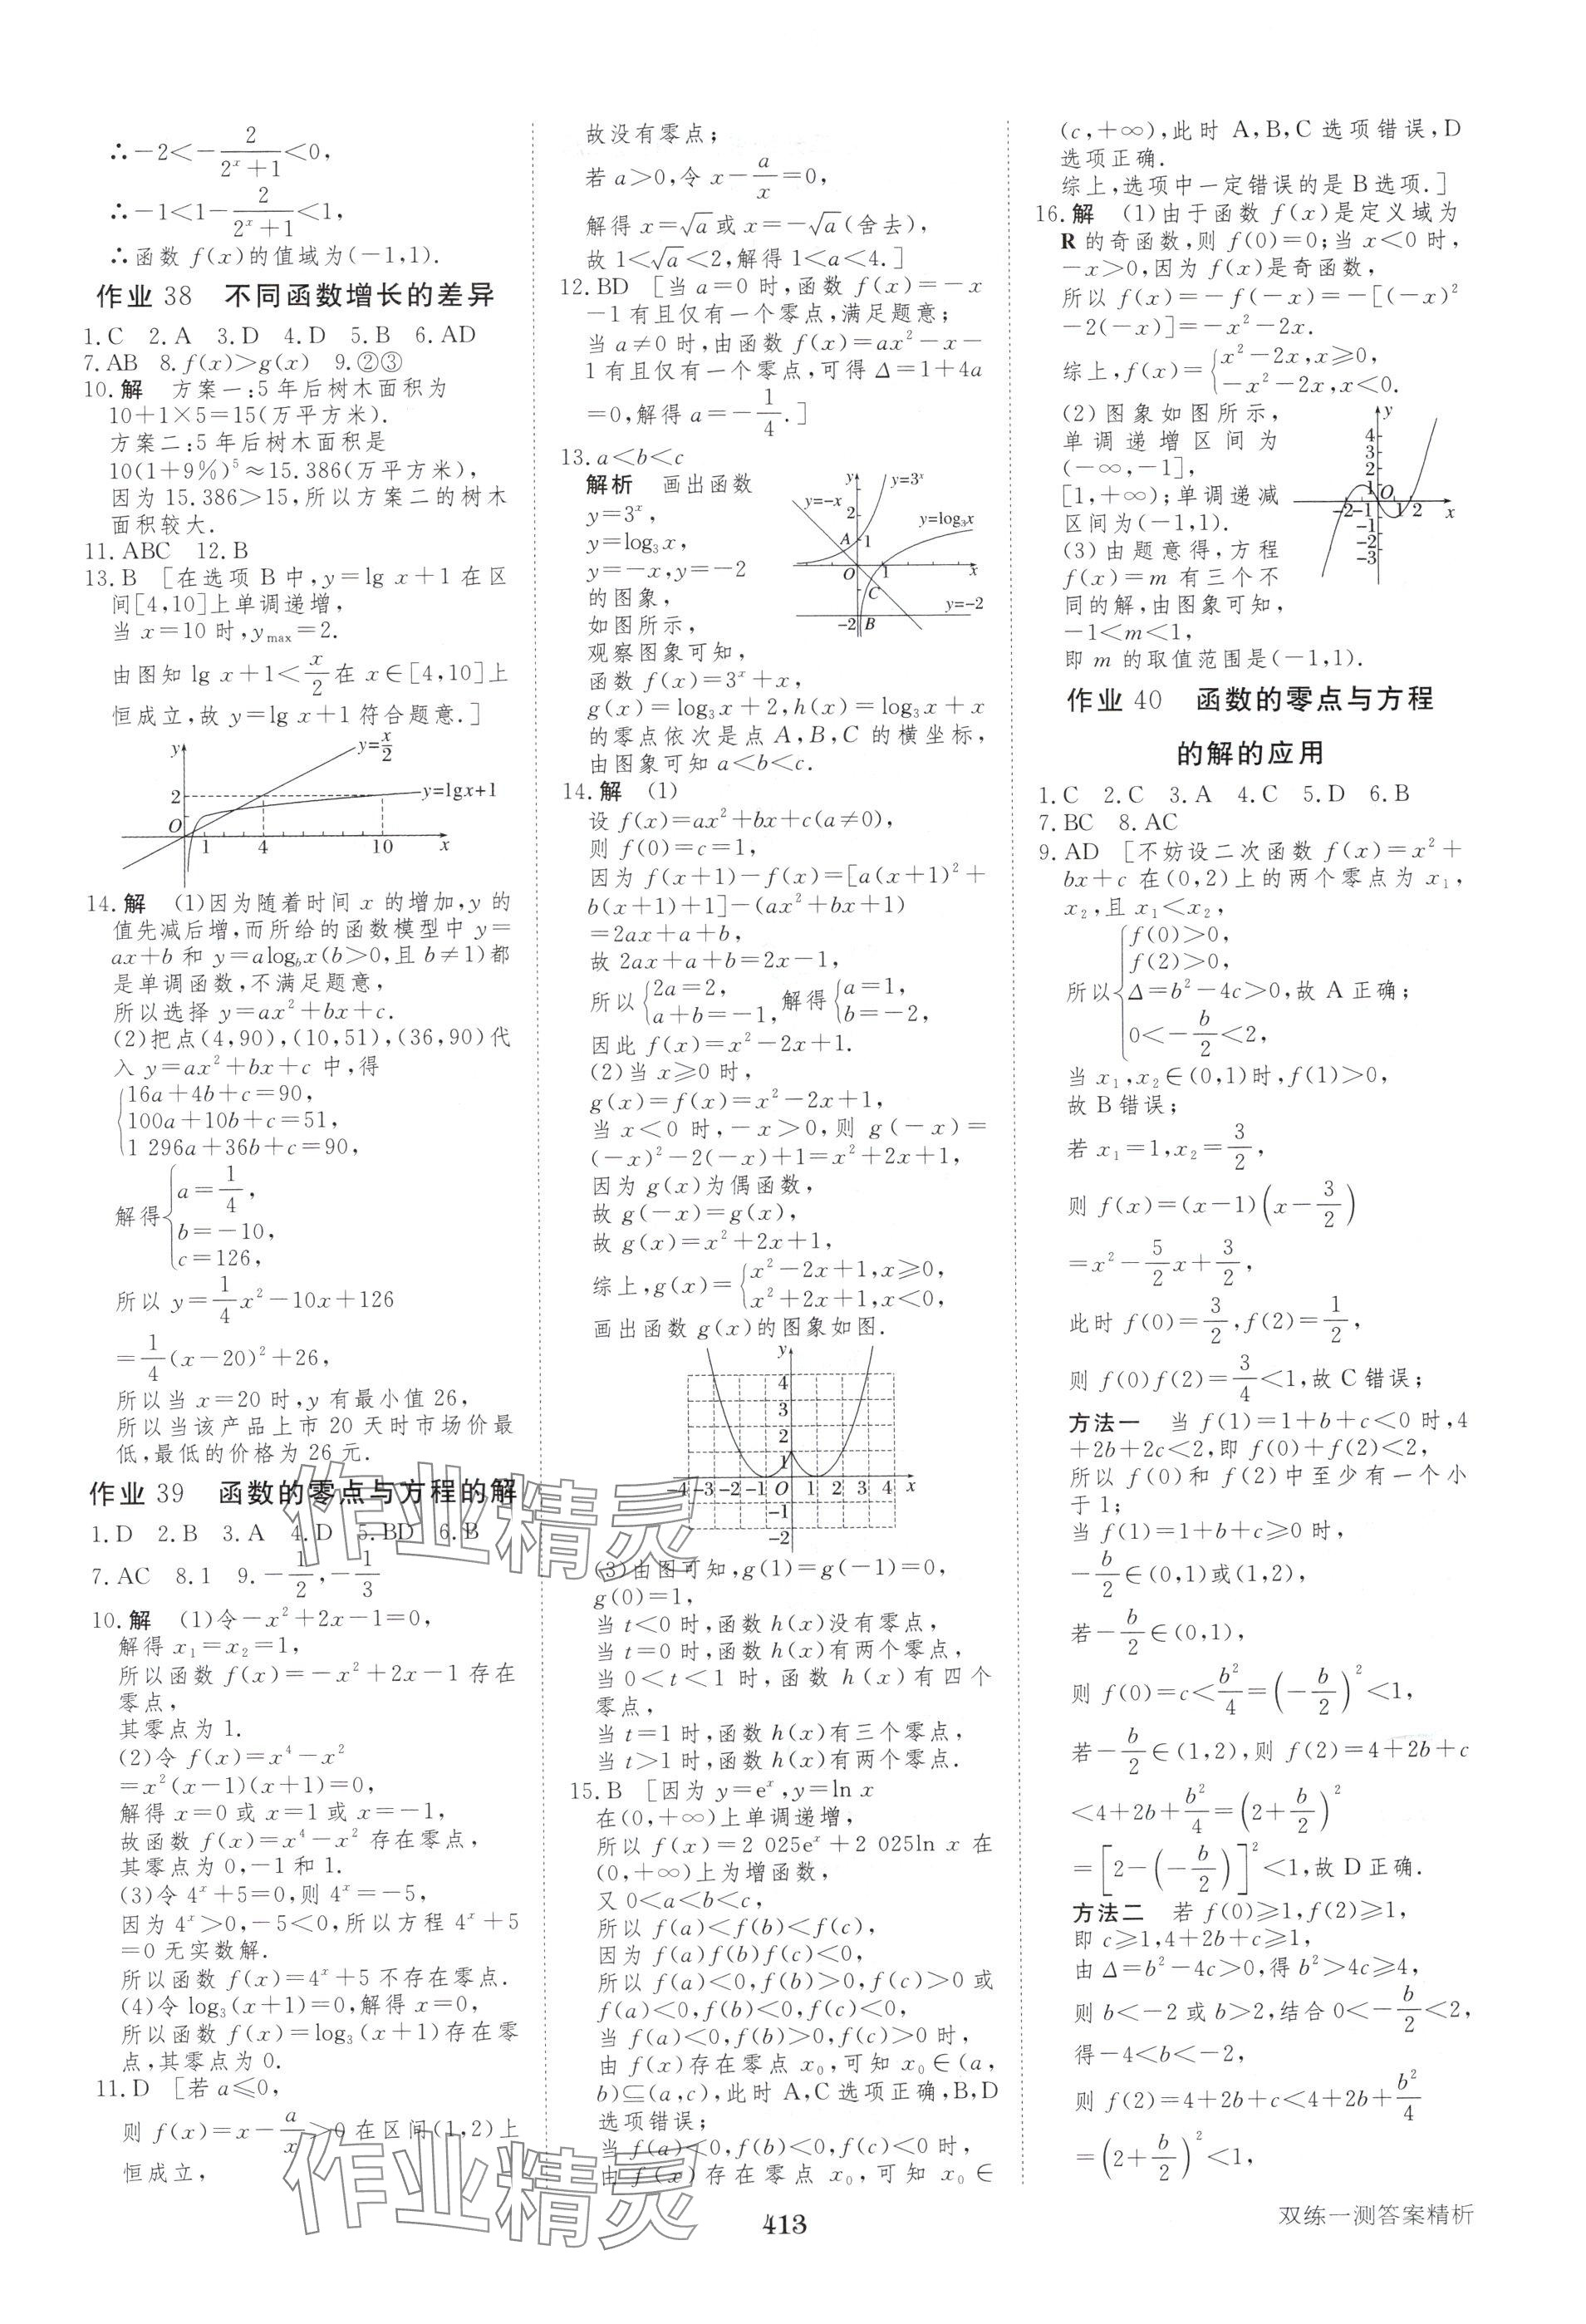 ∴-2<-2/(2^x+1)<0,
∴-1<1-2/(2^x+1)<1,
∴函数 f(x)的值域为(-1,1).
作业 38 不同函数增长的差异
1.C 2.A 3.D 4.D 5.B 6.AD
7.AB 8.f(x)>g(x) 9.②③
10.解 方案一:5 年后树木面积为
10+1×5=15(万平方米).
方案二:5 年后树木面积是
10(1+9%)^5≈15.386(万平方米),
因为 15.386>15,所以方案二的树木
面积较大.
11.ABC 12.B
13.B [在选项 B 中,y=lg x+1 在区
间[4,10]上单调递增,
当 x=10 时,y_max=2.
由图知 lg x+1<x/2 在 x∈[4,10]上
恒成立,故 y=lg x+1 符合题意.]
y
y=x/2
2
y=lgx+1
O
1 4 10 x
14.解 (1)因为随着时间 x 的增加,y 的
值先减后增,而所给的函数模型中 y=
ax+b 和 y=alog_b x(b>0,且 b≠1)都
是单调函数,不满足题意,
所以选择 y=ax²+bx+c.
(2)把点(4,90),(10,51),(36,90)代
入 y=ax²+bx+c 中,得
16a+4b+c=90,
100a+10b+c=51,
1 296a+36b+c=90,
解得
a=1/4,
b=-10,
c=126,
所以 y=1/4x²-10x+126
=1/4(x-20)²+26,
所以当 x=20 时,y 有最小值 26,
所以当该产品上市 20 天时市场价最
低,最低的价格为 26 元.
作业 39 函数的零点与方程的解
1.D 2.B 3.A 4.D 5.BD 6.B
7.AC 8.1 9.-1/2,-1/3
10.解 (1)令-x²+2x-1=0,
解得 x₁=x₂=1,
所以函数 f(x)=-x²+2x-1 存在
零点,
其零点为 1.
(2)令 f(x)=x⁴-x²
=x²(x-1)(x+1)=0,
解得 x=0 或 x=1 或 x=-1,
故函数 f(x)=x⁴-x² 存在零点,
其零点为 0,-1 和 1.
(3)令 4^x+5=0,则 4^x=-5,
因为 4^x>0,-5<0,所以方程 4^x+5
=0 无实数解.
所以函数 f(x)=4^x+5 不存在零点.
(4)令 log₃(x+1)=0,解得 x=0,
所以函数 f(x)=log₃(x+1)存在零
点,其零点为 0.
11.D [若 a≤0,
则 f(x)=x-a/x>0 在区间(1,2)上
恒成立,
故没有零点;
若 a>0,令 x-a/x=0,
解得 x=√a 或 x=-√a(舍去),
故 1<√a<2,解得 1<a<4.]
12.BD [当 a=0 时,函数 f(x)=-x
-1 有且仅有一个零点,满足题意;
当 a≠0 时,由函数 f(x)=ax²-x-
1 有且仅有一个零点,可得 Δ=1+4a
=0,解得 a=-1/4.]
13.a<b<c
解析 画出函数
y=3^x,
y=log₃x,
y=-x,y=-2
的图象,
如图所示,
y y=3^x
y=-x
2
y=log₃x
A 1
O 1 x
C
y=-2
-2 B
观察图象可知,
函数 f(x)=3^x+x,
g(x)=log₃x+2,h(x)=log₃x+x
的零点依次是点 A,B,C 的横坐标,
由图象可知 a<b<c.
14.解 (1)
设 f(x)=ax²+bx+c(a≠0),
则 f(0)=c=1,
因为 f(x+1)-f(x)=[a(x+1)²+
b(x+1)+1]-(ax²+bx+1)
=2ax+a+b,
故 2ax+a+b=2x-1,
所以{2a=2, a+b=-1, 解得{a=1, b=-2,
因此 f(x)=x²-2x+1.
(2)当 x≥0 时,
g(x)=f(x)=x²-2x+1,
当 x<0 时,-x>0,则 g(-x)=
(-x)²-2(-x)+1=x²+2x+1,
因为 g(x)为偶函数,
故 g(-x)=g(x),
故 g(x)=x²+2x+1,
综上,g(x)={x²-2x+1,x≥0, x²+2x+1,x<0,
画出函数 g(x)的图象如图.
y
4
3
2
1
-4-3-2-1 O 1 2 3 4 x
-1
-2
(3)由图可知,g(1)=g(-1)=0,
g(0)=1,
当 t<0 时,函数 h(x)没有零点,
当 t=0 时,函数 h(x)有两个零点,
当 0<t<1 时,函数 h(x)有四个
零点,
当 t=1 时,函数 h(x)有三个零点,
当 t>1 时,函数 h(x)有两个零点.
15.B [因为 y=e^x,y=ln x
在(0,+∞)上单调递增,
所以 f(x)=2 025e^x+2 025ln x 在
(0,+∞)上为增函数,
又 0<a<b<c,
所以 f(a)<f(b)<f(c),
因为 f(a)f(b)f(c)<0,
所以 f(a)<0,f(b)>0,f(c)>0 或
f(a)<0,f(b)<0,f(c)<0,
当 f(a)<0,f(b)>0,f(c)>0 时,
由 f(x)存在零点 x₀,可知 x₀∈(a,
b)⊆(a,c),此时 A,C 选项正确,B,D
选项错误;
当 f(a)<0,f(b)<0,f(c)<0 时,
由 f(x)存在零点 x₀,可知 x₀∈
(c,+∞),此时 A,B,C 选项错误,D
选项正确.
综上,选项中一定错误的是 B 选项.]
16.解 (1)由于函数 f(x)是定义域为
R 的奇函数,则 f(0)=0;当 x<0 时,
-x>0,因为 f(x)是奇函数,
所以 f(x)=-f(-x)=-[(-x)²
-2(-x)]=-x²-2x.
综上,f(x)={x²-2x,x≥0, -x²-2x,x<0.
(2)图象如图所示,
单调递增区间为
(-∞,-1],
[1,+∞);单调递减
区间为(-1,1).
(3)由题意得,方程
f(x)=m 有三个不
同的解,由图象可知,
y
4
3
2
1
-2-1 O 1 2 x
-1
-2
-3
-1<m<1,
即 m 的取值范围是(-1,1).
作业 40 函数的零点与方程
的解的应用
1.C 2.C 3.A 4.C 5.D 6.B
7.BC 8.AC
9.AD [不妨设二次函数 f(x)=x²+
bx+c 在(0,2)上的两个零点为 x₁,
x₂,且 x₁<x₂,
f(0)>0,
f(2)>0,
所以 Δ=b²-4c>0,故 A 正确;
0<-b/2<2,
当 x₁,x₂∈(0,1)时,f(1)>0,
故 B 错误;
若 x₁=1,x₂=3/2,
则 f(x)=(x-1)(x-3/2)
=x²-5/2x+3/2,
此时 f(0)=3/2,f(2)=1/2,
则 f(0)f(2)=3/4<1,故 C 错误;
方法一 当 f(1)=1+b+c<0 时,4
+2b+2c<2,即 f(0)+f(2)<2,
所以 f(0)和 f(2)中至少有一个小
于 1;
当 f(1)=1+b+c≥0 时,
-b/2∈(0,1)或(1,2),
若-b/2∈(0,1),
则 f(0)=c<b²/4=(-b/2)²<1,
若-b/2∈(1,2),则 f(2)=4+2b+c
<4+2b+b²/4=(2+b/2)²
=[2-(-b/2)]²<1,故 D 正确.
方法二 若 f(0)≥1,f(2)≥1,
即 c≥1,4+2b+c≥1,
由 Δ=b²-4c>0,得 b²>4c≥4,
则 b<-2 或 b>2,结合 0<-b/2<2,
得-4<b<-2,
则 f(2)=4+2b+c<4+2b+b²/4
=(2+b/2)²<1,
作业精灵
作业精灵
413
双练一测答案精析